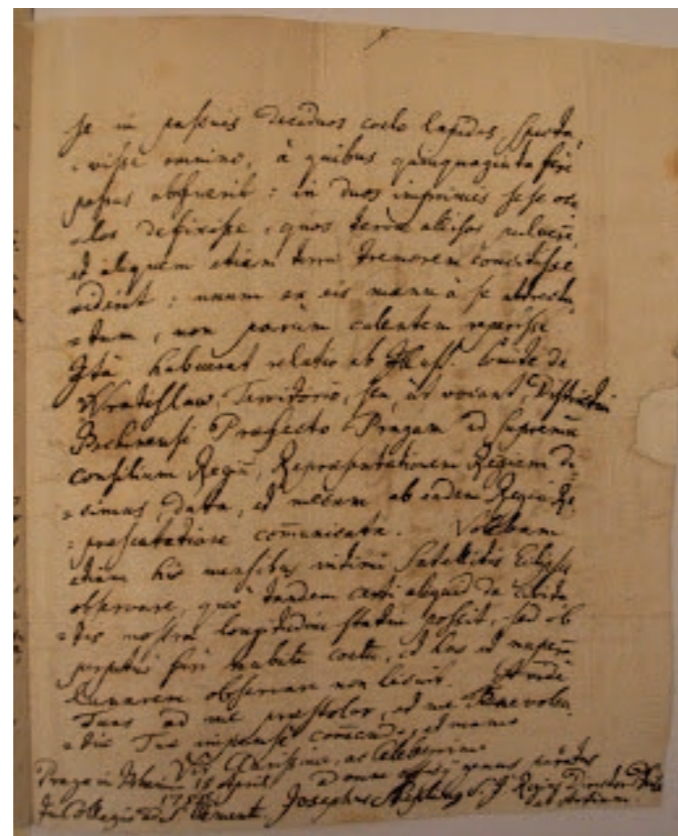 se in passus deciduos coelo lapides, specta,
-visse omnino, à quibus quinquaginta fere
passus abfuerit : in duos imprimis sese ocu
-los defixisse, quos terrae
et aliquem etiam terrae tremorem concitasse
viderit : unum ex eis manu à se attrecta
-tum, non parum calentem reperisse.
Ità habuerat relatio ab Illust. Comite de
Wratislaw Territorio, seu, ut vocant, Districtui
Bechinensi Praefecto Pragam ad supremū
consilium Regiū, Repraesentationem Regiam di
-cimus, data, et mecum ab eadem Regia Re
-praesentatione com̄unicata. Volebam
etiam his mensibus intimi Satellitis Eclipses
observare, quò tandem certi aliquid de Civita
-tis nostrae longitudine statui possit, sed ob
perpetuò fere nubilū coelū, et has et nuperā
Lunarem observare non licuit. Avidè
Tuas ad me praestolor, et me Benevolen
-tiae Tuae impensè com̄endo, et maneo
Vir Clarissime, ac Celeberrime
Praga in Bohemia 18 April ad omne officij genus paratus
In Collegio ad S. Clement. Josephus Stepling S.J. Regius Director